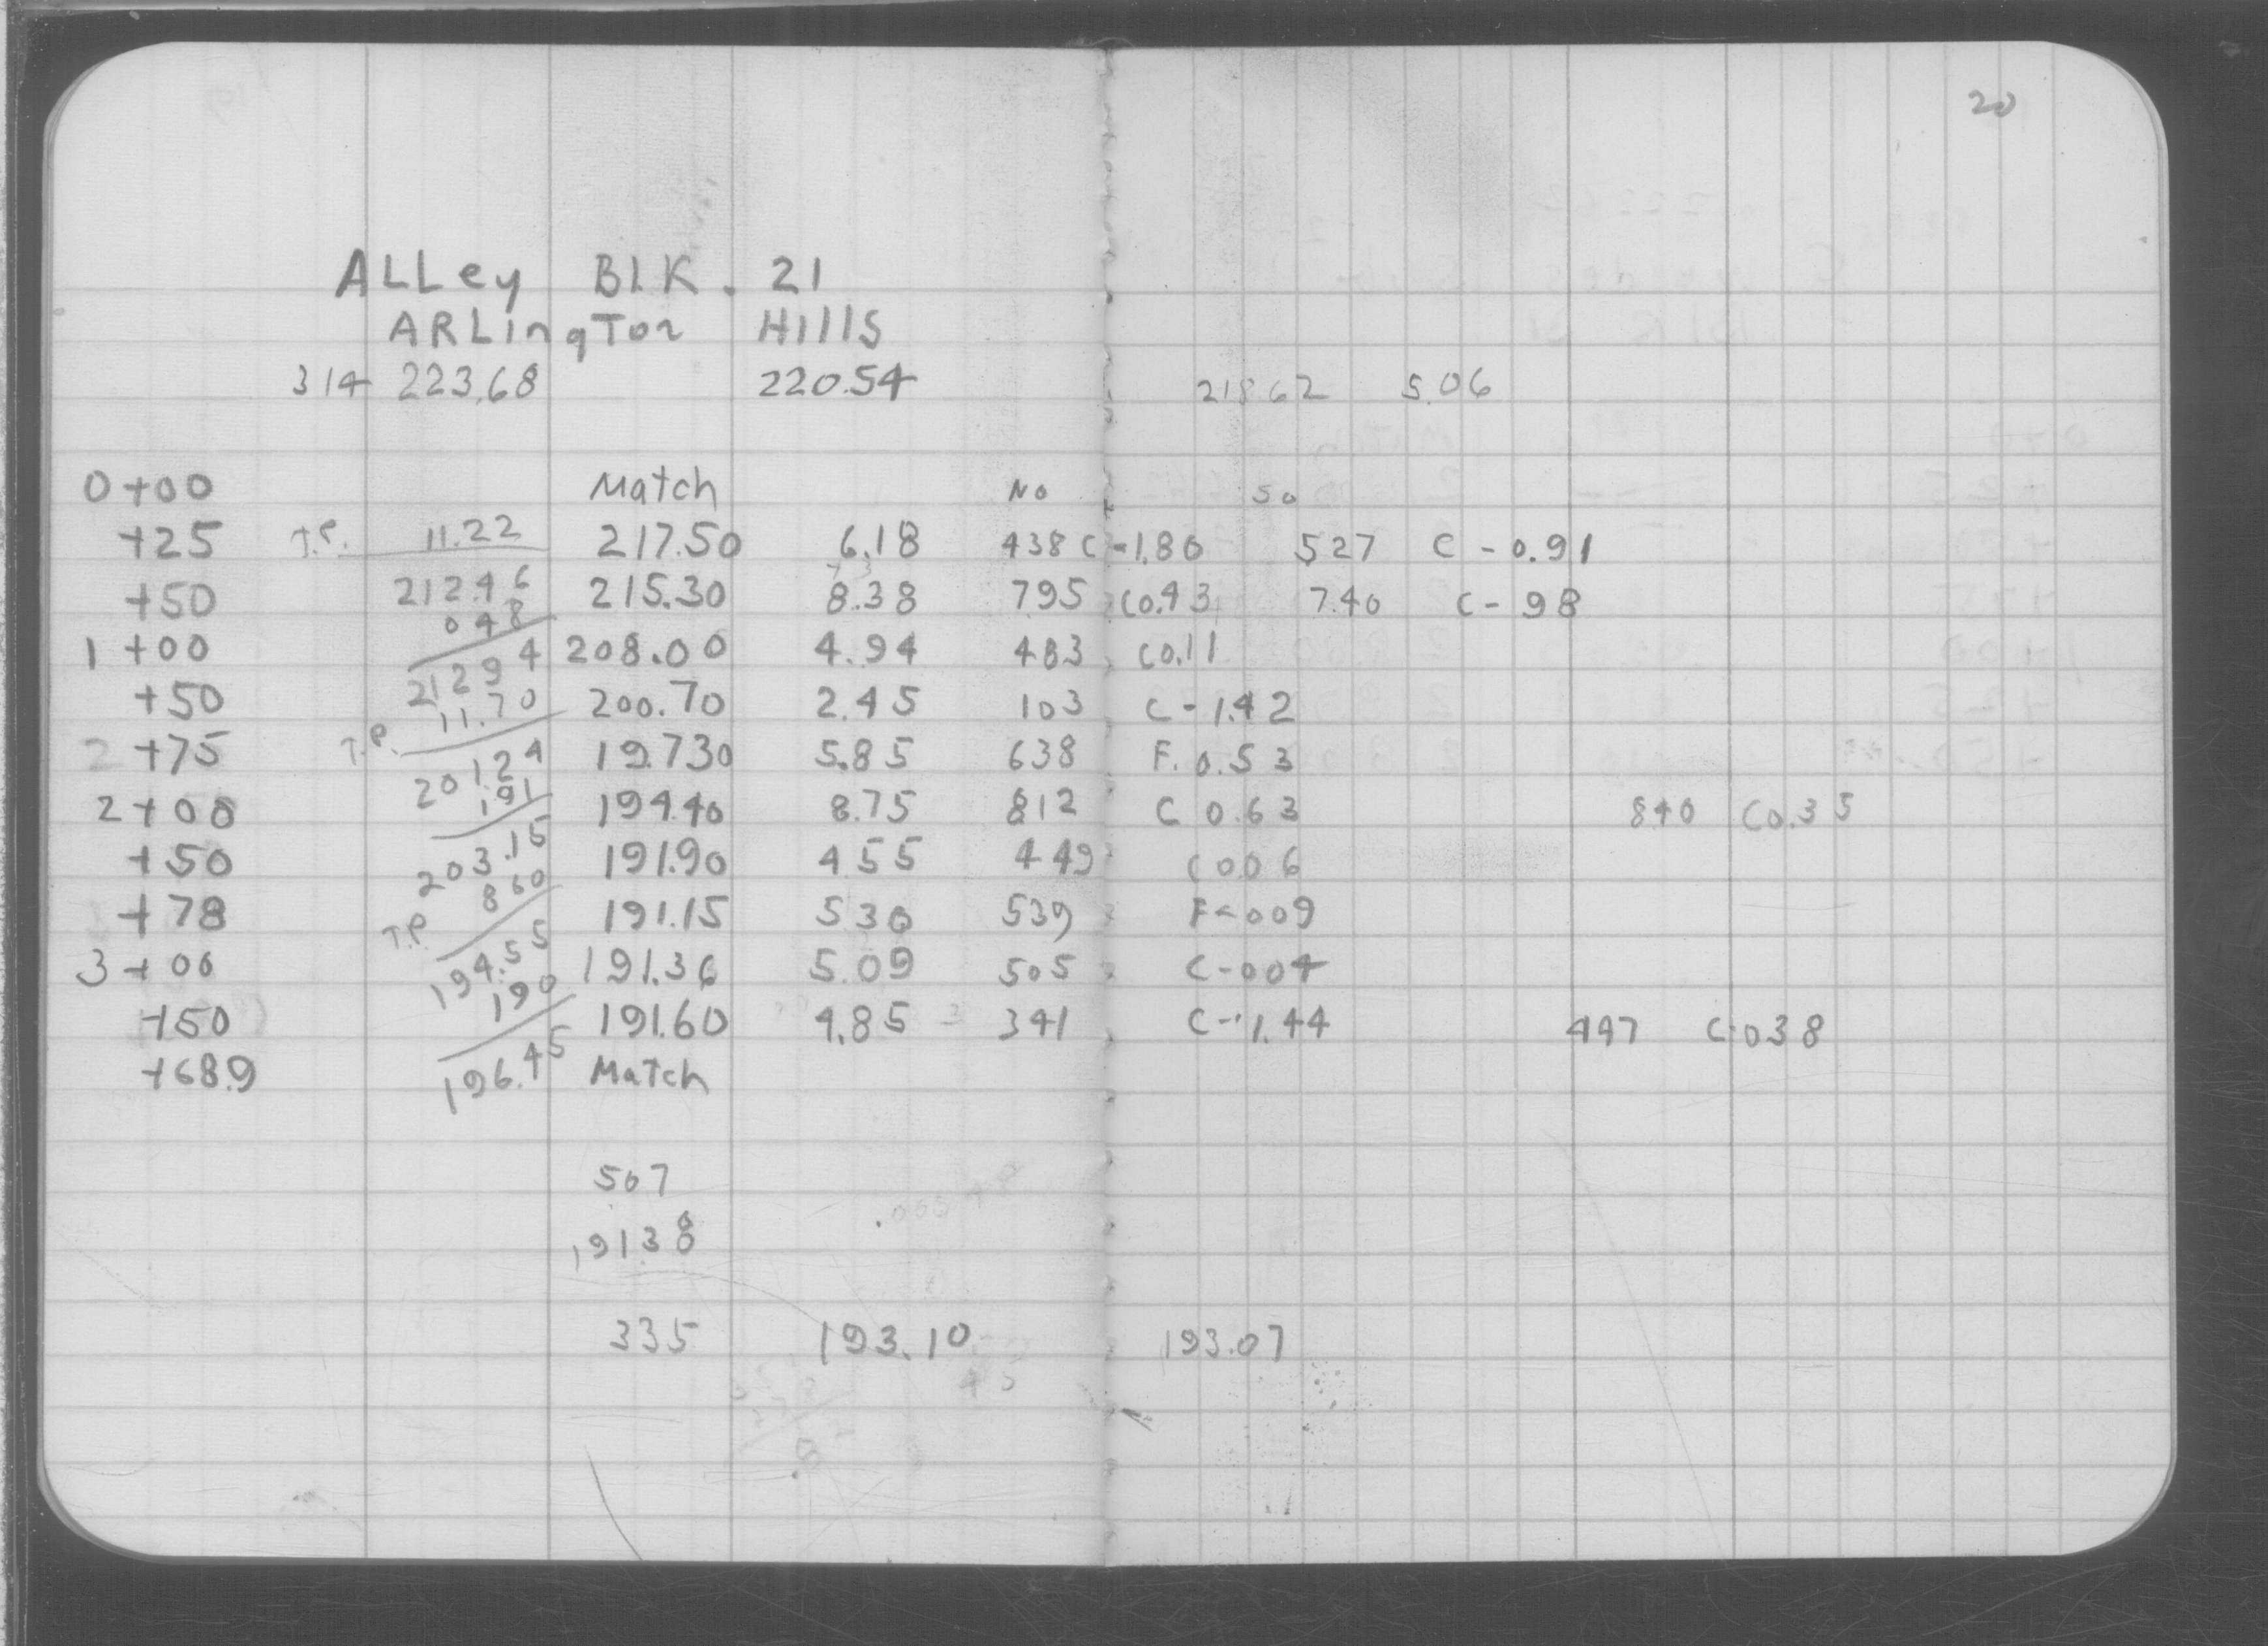 20
ALLey BLK. 21
ARLingTon Hills
314 223.68 220.54 218.62 5.06
0+00 Match No So
+25 T.P. 11.22 217.50 6.18 438 C-1.80 527 C-0.91
+50 212.46 215.30 8.38 795 C0.43 7.40 C-98
048
1+00 212 94 208.00 4.94 483 C0.11
+50 11.70 200.70 2.45 103 C-1.42
2+75 T.P. 201.24 19.730 5.85 638 F. 0.53
2+00 191 194.40 8.75 812 C 0.63 840 C0.35
+50 203.15 191.90 455 449 C006
860
+78 T.P. 191.15 530 539 F-009
3+00 194.55 191.36 5.09 505 C-004
190
+50 191.60 4.85 341 C-1.44 447 C-038
+68.9 196.45 Match
507
19138
335 193.10 193.07